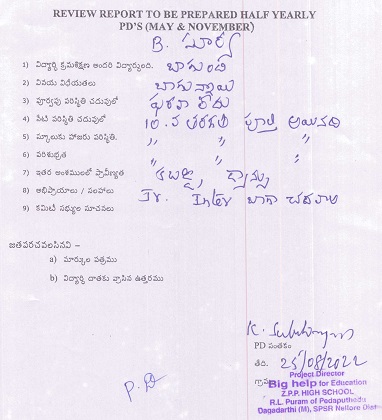 REVIEW REPORT TO BE PREPARED HALF YEARLY
PD'S (MAY & NOVEMBER)
B.
1) విద్యార్థి క్రమశిక్షణ అందరి విద్యార్థుంది. బాగుంది
2) వినయ విధేయతలు బాగున్నాయి
3) పూర్వపు పరిస్థితి చదువులో ఫరవా లేదు
4) నేటి పరిస్థితి చదువులో 10. వ తరగతి పూర్తి అయినది
5) స్కూలుకు హాజరు పరిస్థితి. " " "
6) పరిశుభ్రత " " "
7) ఇతర అంశములలో ప్రావీణ్యత కబడ్డి, డ్యాన్సు
8) అభిప్రాయాలు / సలహాలు Jr. Inter బాగా చదవాలి
9) కమిటీ సభ్యుల సూచనలు
జతపరచవలసినవి –
a) మార్కుల పత్రము
b) విద్యార్థి దాతకు వ్రాసిన ఉత్తరము
PD సంతకం
తేది. 25/08/2022
P.D
Project Director
Big help for Education
Z.P.P. HIGH SCHOOL
R.L. Puram of Pedaputhedu
Dagadarthi (M), SPSR Nellore Dist